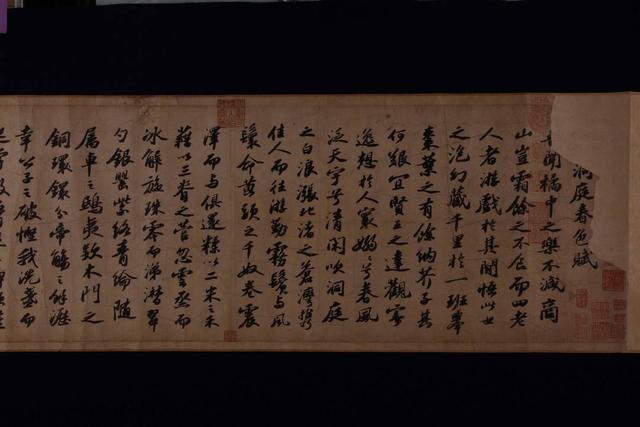 洞庭春色賦
聞橘中之樂不減商
山豈霜餘之不食而四老
人者游戲於其間悟此世
之泡幻藏千里於一班舉
棗葉之有餘納芥子其
何艱宜賢王之達觀寄
逸想於人寰嫋嫋兮春風
泛天宇兮清閑吹洞庭
之白浪漲北渚之蒼灣攜
佳人而往游勤霧鬢與風
鬟命黃頭之千奴卷震
澤而與俱還糅以二米之禾
藉以三脊之菅忽雲烝而
冰解旋珠零而涕潸翠
勺銀罌紫絡青綸隨
屬車之鴟夷款木門之
銅環鏁分帝觴之餘瀝
幸公子之破慳我洗盞而